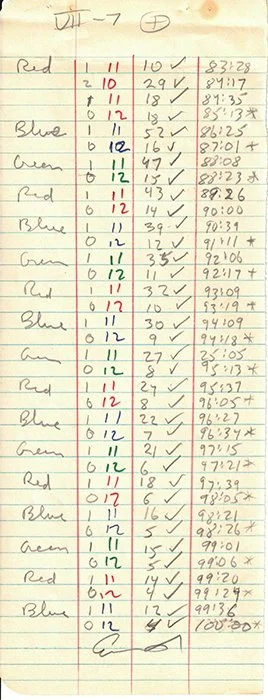 VII - 7 +
Red 1 11 10 ✓ 83:28
2 10 29 ✓ 84:17
1 11 18 ✓ 84:35
0 12 18 ✓ 85:13*
Blue 1 11 52 ✓ 86:25
0 12 16 ✓ 87:01 *
Green 1 11 47 ✓ 88:08
0 12 15 ✓ 88:23 *
Red 1 11 43 ✓ 89:26
0 12 14 ✓ 90:00
Blue 1 11 39 ✓ 90:39
0 12 12 ✓ 91:11 *
Green 1 11 35 ✓ 92:06
0 12 11 ✓ 92:17 *
Red 1 11 32 ✓ 93:09
0 12 10 ✓ 93:19 *
Blue 1 11 30 ✓ 94:09
0 12 9 ✓ 94:18 *
Green 1 11 27 ✓ 25:05
0 12 8 ✓ 95:13 *
Red 1 11 24 ✓ 95:37
0 12 8 ✓ 96:05 *
Blue 1 11 22 ✓ 96:27
0 12 7 ✓ 96:34 *
Green 1 11 21 ✓ 97:15
0 12 6 ✓ 97:21 *
Red 1 11 18 ✓ 97:39
0 12 6 ✓ 98:05 *
Blue 1 11 16 ✓ 98:21
0 12 5 ✓ 98:26 *
Green 1 11 15 ✓ 99:01
0 12 5 ✓ 99:06 *
Red 1 11 14 ✓ 99:20
0 12 4 ✓ 99:24 *
Blue 1 11 12 ✓ 99:36
0 12 4 ✓ 100:00 *